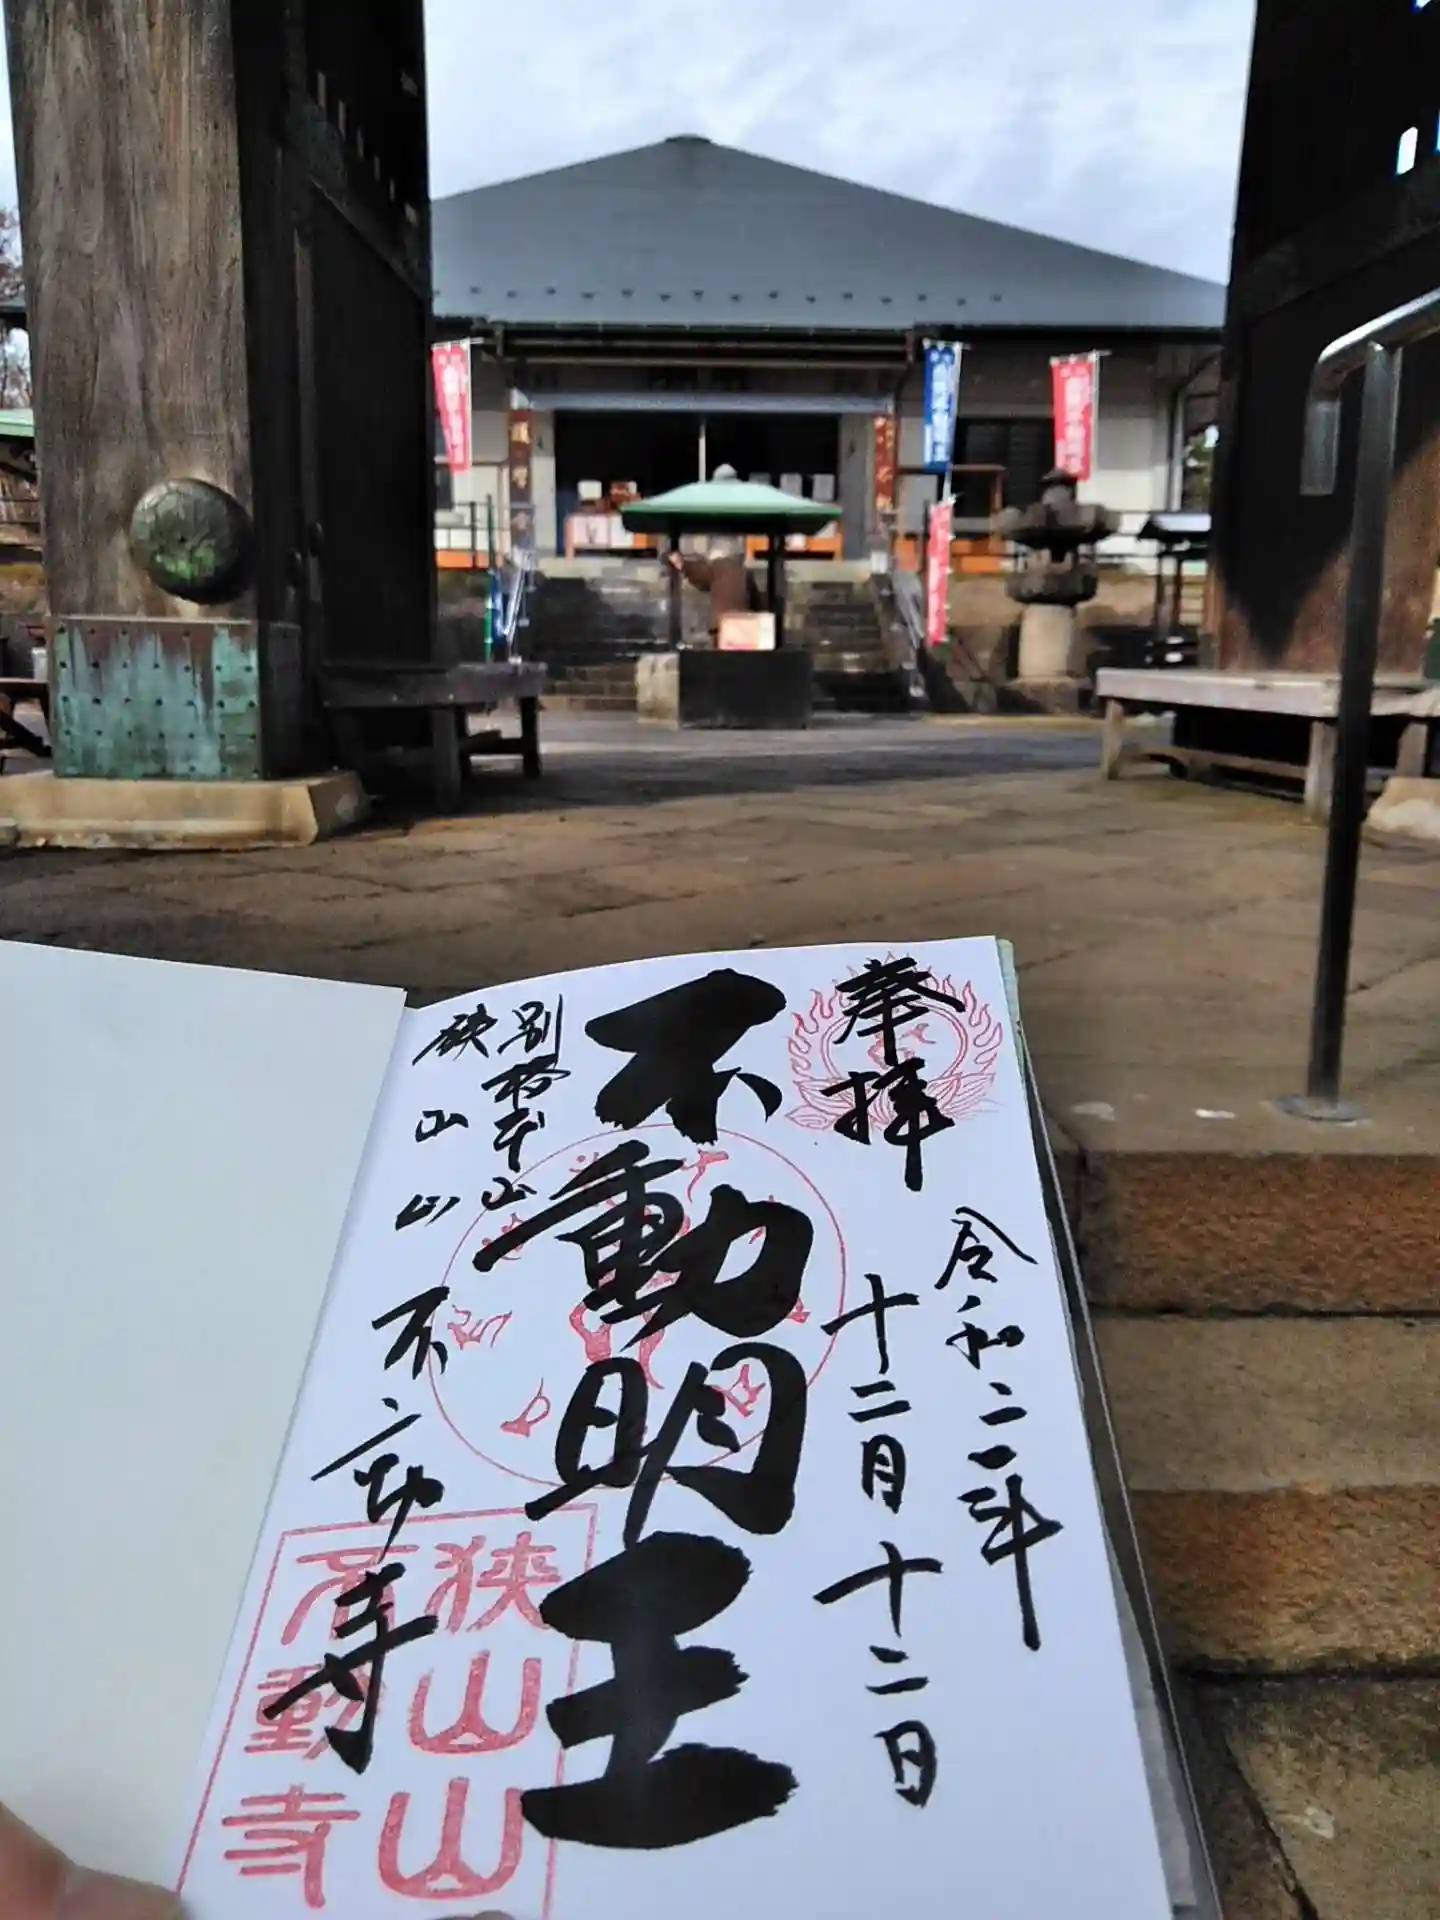 奉拝
令和二年
十二月十二日
不動明王
別格本山
狭山山
不動寺
狭山山
不動寺